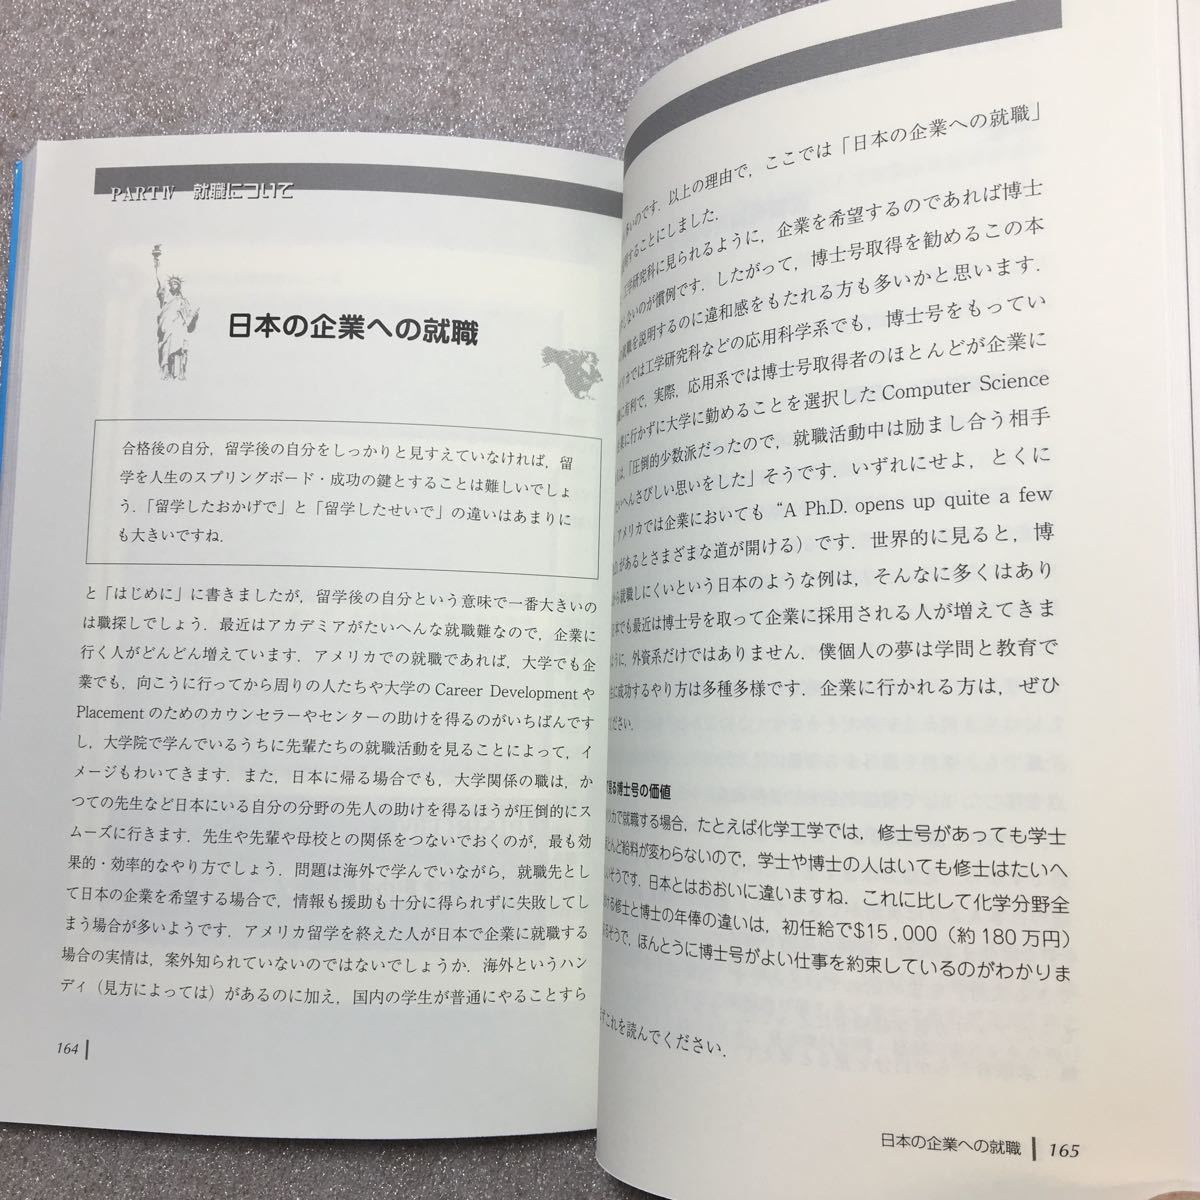 PART Ⅳ 就職について
日本の企業への就職
合格後の自分，留学後の自分をしっかりと見すえていなければ，留
学を人生のスプリングボード・成功の鍵とすることは難しいでしょ
う．「留学したおかげで」と「留学したせいで」の違いはあまりに
も大きいですね．
と「はじめに」に書きましたが，留学後の自分という意味で一番大きいの
は職探しでしょう．最近はアカデミアがたいへんな就職難なので，企業に
行く人がどんどん増えています．アメリカでの就職であれば，大学でも企
業でも，向こうに行ってから周りの人たちや大学の Career Development や
Placement のためのカウンセラーやセンターの助けを得るのがいちばんです
し，大学院で学んでいるうちに先輩たちの就職活動を見ることによって，イ
メージもわいてきます．また，日本に帰る場合でも，大学関係の職は，か
つての先生など日本にいる自分の分野の先人の助けを得るほうが圧倒的にス
ムーズに行きます．先生や先輩や母校との関係をつないでおくのが，最も効
果的・効率的なやり方でしょう．問題は海外で学んでいながら，就職先とし
て日本の企業を希望する場合で，情報も援助も十分に得られずに失敗してし
まう場合が多いようです．アメリカ留学を終えた人が日本で企業に就職する
場合の実情は，案外知られていないのではないでしょうか．海外というハン
ディ（見方によっては）があるのに加え，国内の学生が普通にやることすら
164
多いのです．以上の理由で，ここでは「日本の企業への就職」
することにしました．
工学研究科に見られるように，企業を希望するのであれば博士
しないのが慣例です．したがって，博士号取得を勧めるこの本
就職を説明するのに違和感をもたれる方も多いかと思います．
リカでは工学研究科などの応用科学系でも，博士号をもってい
に有利で，実際，応用系では博士号取得者のほとんどが企業に
業に行かずに大学に勤めることを選択した Computer Science
は，「圧倒的少数派だったので，就職活動中は励まし合う相手
いへんさびしい思いをした」そうです．いずれにせよ，とくに
アメリカでは企業においても “A Ph.D. opens up quite a few
があるとさまざまな道が開ける）です．世界的に見ると，博
から就職しにくいという日本のような例は，そんなに多くはあり
日本でも最近は博士号を取って企業に採用される人が増えてきま
ように，外資系だけではありません．僕個人の夢は学問と教育で
に成功するやり方は多種多様です．企業に行かれる方は，ぜひ
ださい．
見る博士号の価値
リカで就職する場合，たとえば化学工学では，修士号があっても学士
とんど給料が変わらないので，学士や博士の人はいても修士はたいへ
いそうです．日本とはおおいに違いますね．これに比して化学分野全
ける修士と博士の年俸の違いは，初任給で$15,000（約180万円）
るそうで，ほんとうに博士号がよい仕事を約束しているのがわかりま
ずこれを読んでください．
日本の企業への就職 165